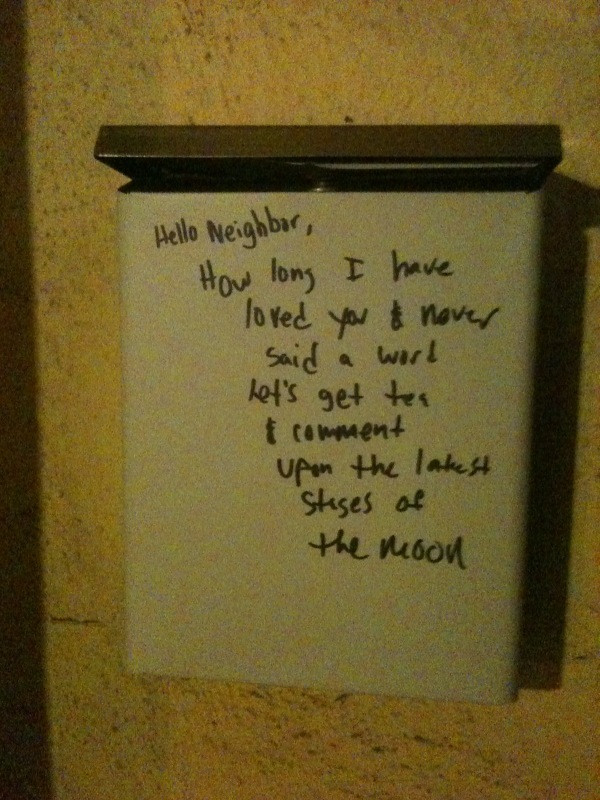 Hello Neighbor,
How long I have
loved you & never
said a word
Let's get tea
& comment
upon the latest
stages of
the moon